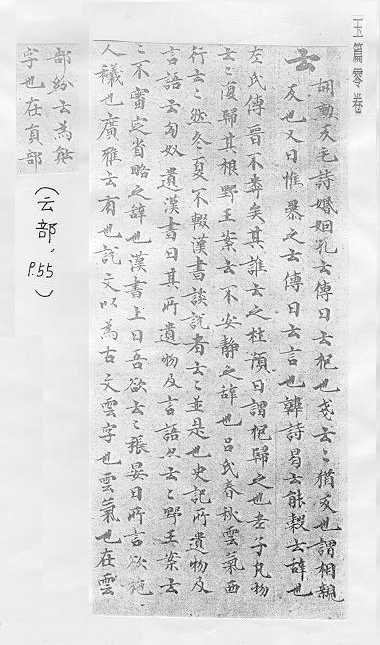 玉篇零卷
云 胡勳反毛詩婚姻孔云傳曰云柁也戔云〻猶友也謂相親
友也又曰惟暴之云傳曰云言也韓詩曷云能穀云辞也
左氏傳晉不鄰矣其誰云之杜預曰謂柁歸之也老子凡物
云〻復歸其根野王案云不安静之辞也呂氏春秋雲氣西
行云〻然冬夏不輟漢書談說者云〻並是也史記所遺物及
言語云匈奴遺漢書曰其所遺物及言語云〻野王案云
〻不審定省略之辞也漢書上曰吾欲云〻張晏曰所言欲施
人也廣雅云有也說文以為古文雲字也雲氣也在雲
部紛云為
字也在員部
(云部, P.55)